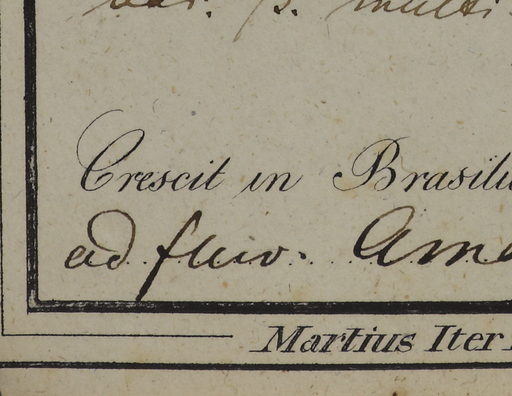 var. β. multi
Crescit in Brasiliæ
ad fluv. Ama
Martius Iter